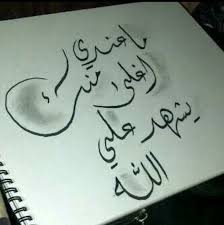 ما عندي
اغلى منك
يشهد علي
الله